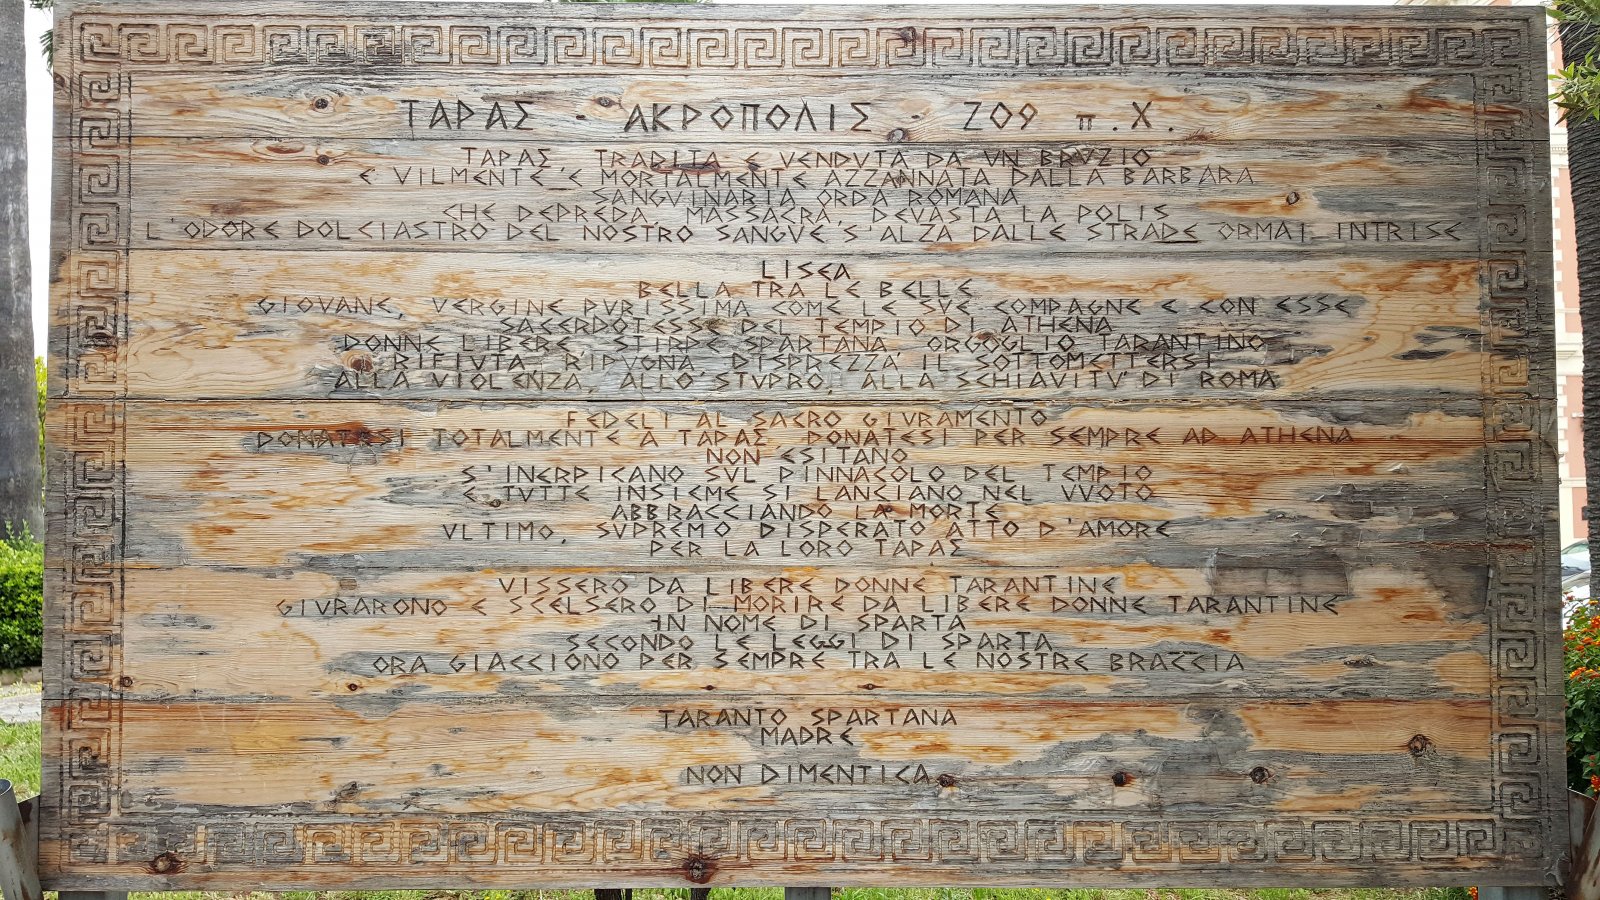 ΤΑΡΑΣ - ΑΚΡΟΠΟΛΙΣ - 209 π.Χ.
ΤΑΡΑΣ, TRADITA E VENDVTA DA VN BRVZIO
E' VILMENTE E MORTALMENTE AZZANNATA DALLA BARBARA
SANGVINARIA ORDA ROMANA
CHE DEPREDA, MASSACRA, DEVASTA LA POLIS
L'ODORE DOLCIASTRO DEL NOSTRO SANGVE S'ALZA DALLE STRADE ORMAI INTRISE
LISEA
BELLA TRA LE BELLE
GIOVANE, VERGINE PVRISSIMA COME LE SVE COMPAGNE E CON ESSE
SACERDOTESSE DEL TEMPIO DI ATHENA
DONNE LIBERE, STIRPE SPARTANA, ORGOGLIO TARANTINO
RIFIVTA, RIPVGNA, DISPREZZA IL SOTTOMETTERSI
ALLA VIOLENZA, ALLO STVPRO, ALLA SCHIAVITV' DI ROMA
FEDELI AL SACRO GIVRAMENTO
DONATESI TOTALMENTE A ΤΑΡΑΣ DONATESI PER SEMPRE AD ATHENA
NON ESITANO
S'INERPICANO SVL PINNACOLO DEL TEMPIO
E TVTTE INSIEME SI LANCIANO NEL VVOTO
ABBRACCIANDO LA MORTE
VLTIMO, SVPREMO DISPERATO ATTO D'AMORE
PER LA LORO ΤΑΡΑΣ
VISSERO DA LIBERE DONNE TARANTINE
GIVRARONO E SCELSERO DI MORIRE DA LIBERE DONNE TARANTINE
IN NOME DI SPARTA
SECONDO LE LEGGI DI SPARTA
ORA GIACCIONO PER SEMPRE TRA LE NOSTRE BRACCIA
TARANTO SPARTANA
MADRE
NON DIMENTICA